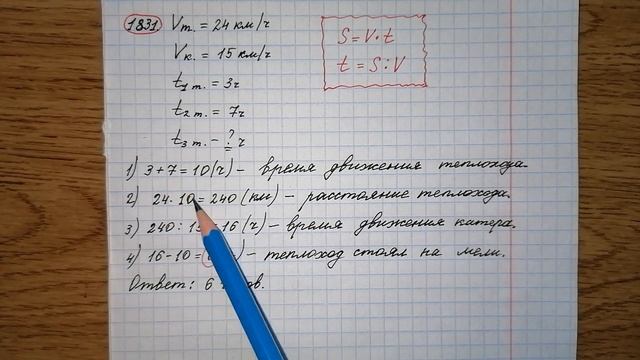 1831. Vт. = 24 км/ч
Vк. = 15 км/ч
t1 т. = 3ч
t2 т. = 7ч
t3 т. – ? ч
S = V·t
t = S : V
1) 3+7=10(ч) – время движения теплохода.
2) 24·10=240 (км) – расстояние теплохода.
3) 240: 16(ч) – время движения катера.
4) 16-10= – теплоход стоял на мели.
Ответ: 6